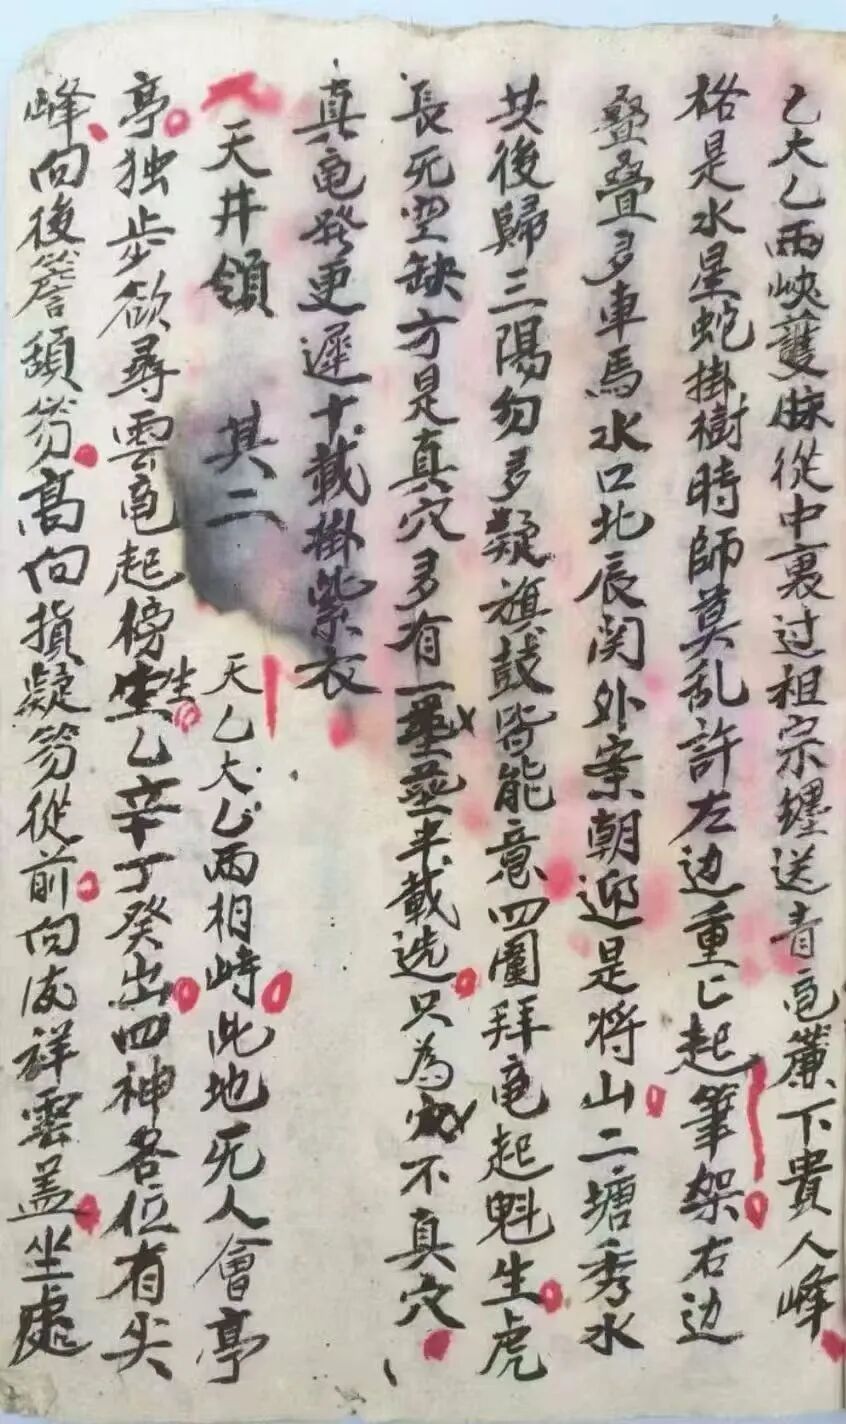 乙大乙两峽護脉從中裏过祖宗纏送青竜簾下貴人峰
格是水星蛇掛樹時師莫乱許左边重〻起筆架右边
疊疊多車馬水口北辰関外案朝迎是将山二塘秀水
共後歸三陽勿多疑旗鼓皆能意四圍拜竜起魁生虎
長无空缺方是真穴多有一塋半載迭只為不真穴
真竜發更遲十載掛紫衣
天井領 其二
天乙大乙两相峙此地无人會亭
亭独步欲尋雲竜起榜生乙辛丁癸出四神各位有尖
峰向後簷頭筑高向損凝筑從前向成祥雲盖坐處